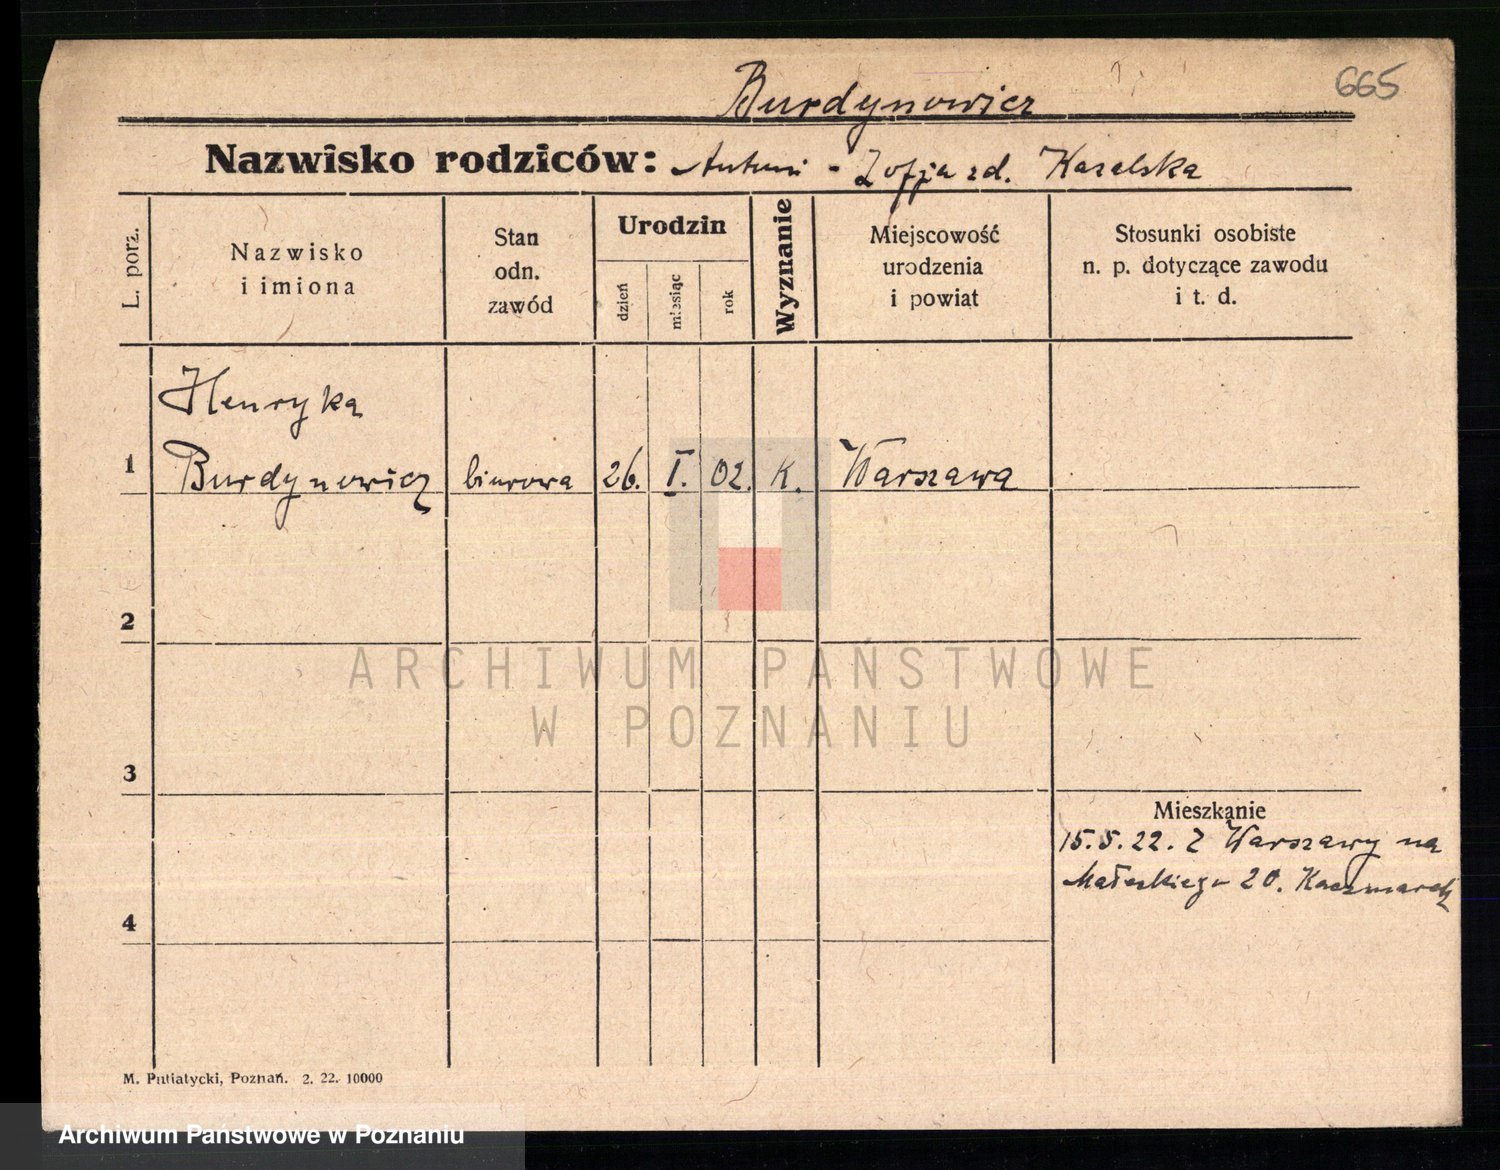 665
Burdynowicz
Nazwisko rodziców: Antoni - Zofja zd. Kazalska
L. porz.
Nazwisko
i imiona
Stan
odn.
zawód
Urodzin
dzień
miesiąc
rok
Wyznanie
Miejscowość
urodzenia
i powiat
Stosunki osobiste
n. p. dotyczące zawodu
i t. d.
Henryka
1 Burdynowicz biurowa 26. I. 02. K. Warszawa
2
ARCHIWUM PAŃSTWOWE
W POZNANIU
3
Mieszkanie
15.5.22. Z Warszawy na
Małeckiego 20. Kaczmarek
4
M. Putiatycki, Poznań. 2. 22. 10000
Archiwum Państwowe w Poznaniu